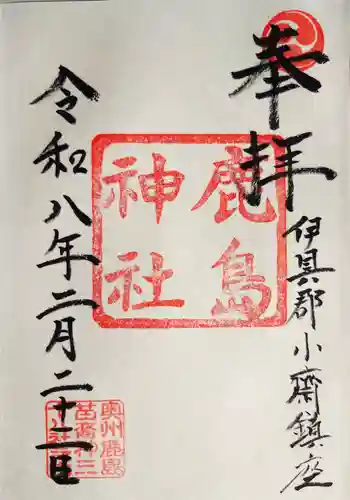 奉拝
伊具郡小齋鎮座
鹿島
神社
令和八年二月二十二日
奥州鹿島
苗裔神三